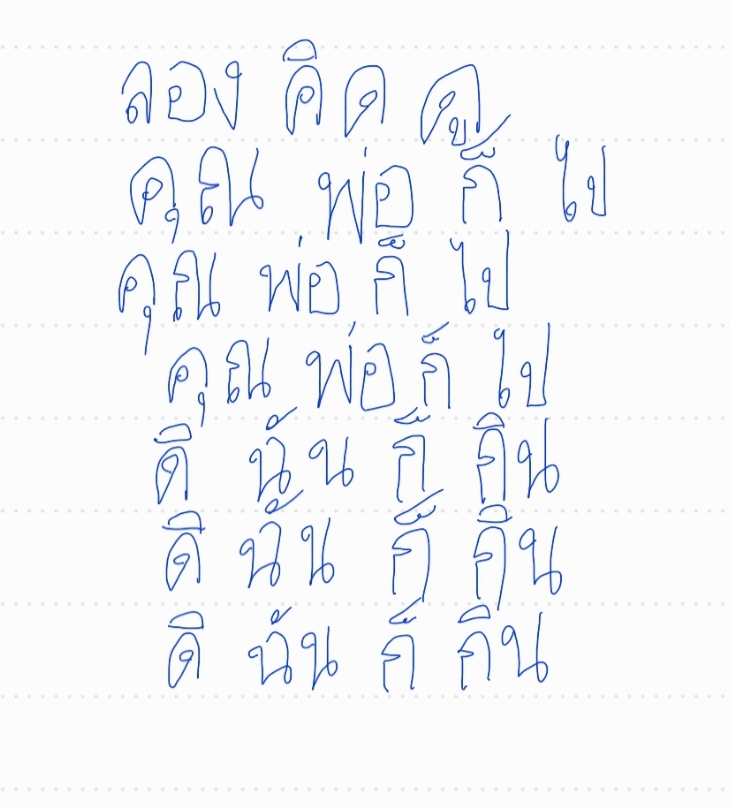 ลอง คิด ดู
คุณ พ่อ ก็ ไป
คุณ พ่อ ก็ ไป
คุณ พ่อ ก็ ไป
ดิ ฉัน ก็ กิน
ดิ ฉัน ก็ กิน
ดิ ฉัน ก็ กิน